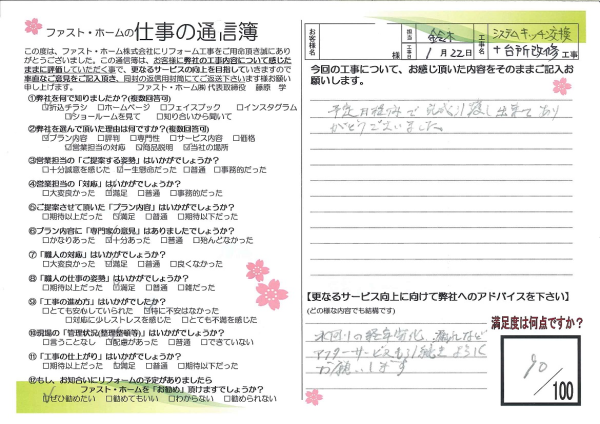 ファスト・ホームの仕事の通信簿
この度は、ファスト・ホーム株式会社にリフォーム工事をご用命頂き誠にあり
がとうございました。この通信簿は、お客様に弊社の工事内容について感じた
ままに評価していただく事で、更なるサービスの向上を目指していきますので
率直なご意見をご記入頂き、同封の返信用封筒にてご返送下さいます様お願い
申し上げます。 ファスト・ホーム㈱ 代表取締役 藤原 学
①弊社を何で知りましたか?(複数回答可)
☑折込チラシ □ホームページ □フェイスブック □インスタグラム
□ショールームを見て □知り合いから聞いて
②弊社を選んで頂いた理由は何ですか?(複数回答可)
☑プラン内容 □評判 □専門性 □サービス内容 □価格
☑営業担当の対応 ☑商品説明 ☑当社の場所
③営業担当の「ご提案する姿勢」はいかがでしょうか?
□十分誠意を感じた ☑一生懸命だった □普通 □事務的だった
④営業担当の「対応」はいかがでしょうか?
□大変良かった ☑満足 □普通 □事務的だった
⑤ご提案させて頂いた「プラン内容」はいかがでしょうか?
□期待以上だった ☑満足 □普通 □期待以下だった
⑥プラン内容に「専門家の意見」はありましたでしょうか?
□かなりあった ☑十分あった □普通 □殆んどなかった
⑦「職人の対応」はいかがでしょうか?
□大変良かった ☑満足 □普通 □良くなかった
⑧「職人の仕事の姿勢」はいかがでしょうか?
□期待以上だった ☑満足 □普通 □雑だった
⑨「工事の進め方」はいかがでしたか?
□とても安心していられた ☑特に不安はなかった
□対応に少しストレスを感じた □とても不満を感じた
⑩現場の「管理状況(整理整頓等)」はいかがでしょうか?
□言うことなし ☑配慮があった □普通 □できていない
⑪「工事の仕上がり」はいかがでしたでしょうか?
□期待以上だった ☑満足 □普通 □期待以下だった
⑫もし、お知合いにリフォームの予定がありましたら
ファスト・ホームを「お勧め」頂けますでしょうか?
☑ぜひ勧めたい □勧めてもいい □わからない □勧められない
お客様名 様 担当 鈴木 工事日 1月22日 工事名 システムキッチン交換
+台所改修 工事
今回の工事について、お感じ頂いた内容をそのままご記入お
願いします。
予定日積みで完成引渡し出来てあり
がとうございました。
【更なるサービス向上に向けて弊社へのアドバイスを下さい】
(どの様な内容でも結構です)
水回りの経年劣化、漏れなど
アフターサービスも
お願いします
満足度は何点ですか?
90/100